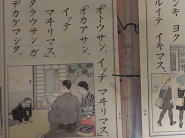 キ ヨク
ルイテ イキマス。
オトウサン、イッテ マヰリマス。
オカアサン、
イッテ
マヰリマス。
タラウサン ガ
デカケマシタ。